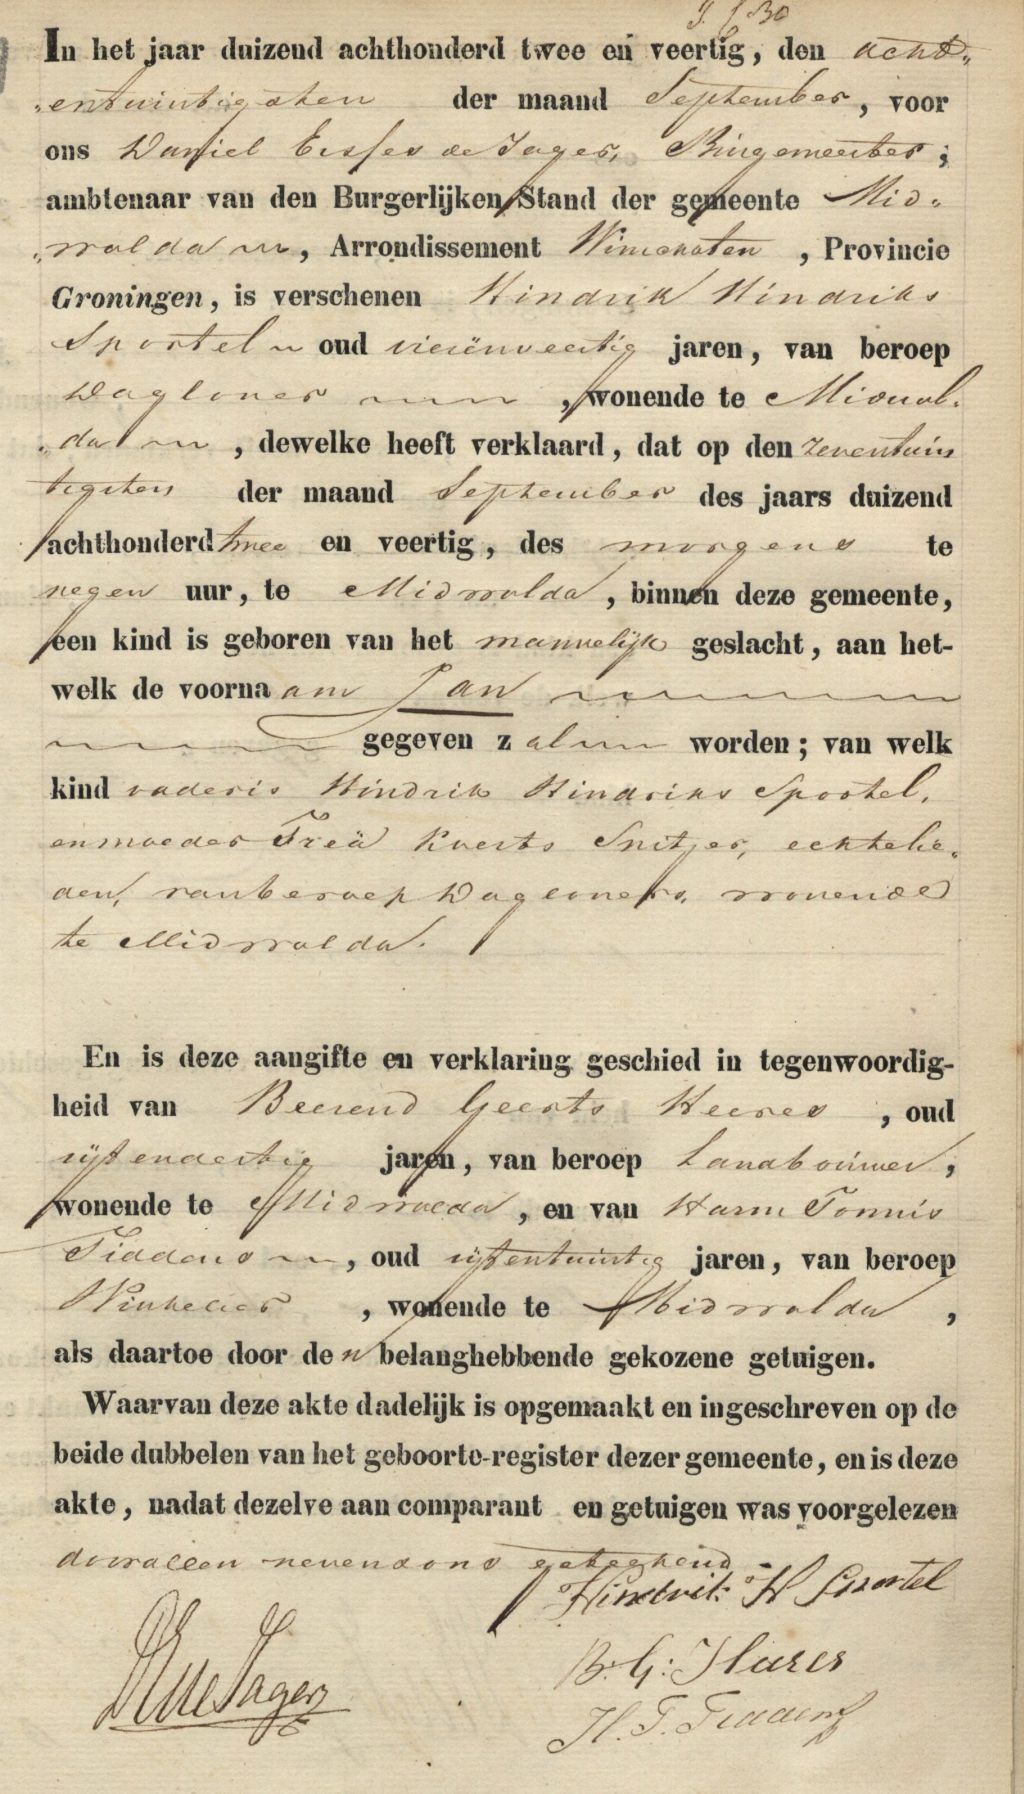 In het jaar duizend achthonderd twee en veertig, den acht-
entwintigsten der maand September, voor
ons Daniel Eisses de Jager, Burgemeester;
ambtenaar van den Burgerlijken Stand der gemeente Mid-
wolda, Arrondissement Winschoten, Provincie
Groningen, is verschenen Hindrik Hindriks
Sportel oud vierënveertig jaren, van beroep
Dagloner, wonende te Midwol-
da, dewelke heeft verklaard, dat op den zeventwin
tigsten der maand September des jaars duizend
achthonderd twee en veertig, des morgens te
negen uur, te Midwolda, binnen deze gemeente,
een kind is geboren van het mannelijk geslacht, aan het-
welk de voornaam Jan
gegeven zal worden; van welk
kind vader is Hindrik Hindriks Sportel,
en moeder Treä Koerts Snitjer, echtelie-
den, van beroep Dagloners, wonende
te Midwolda.
En is deze aangifte en verklaring geschied in tegenwoordig-
heid van Beerend Geerts Heeres, oud
vijfendertig jaren, van beroep Landbouwer,
wonende te Midwolda, en van Harm Tonnis
Tiddens, oud vijfentwintig jaren, van beroep
Winkelier, wonende te Midwolda,
als daartoe door den belanghebbende gekozene getuigen.
Waarvan deze akte dadelijk is opgemaakt en ingeschreven op de
beide dubbelen van het geboorte-register dezer gemeente, en is deze
akte, nadat dezelve aan comparant en getuigen was voorgelezen
door allen nevens ons geteekend
Hindrik H Sportel
DE de Jager
B. G. Heeres
H. T. Tiddens